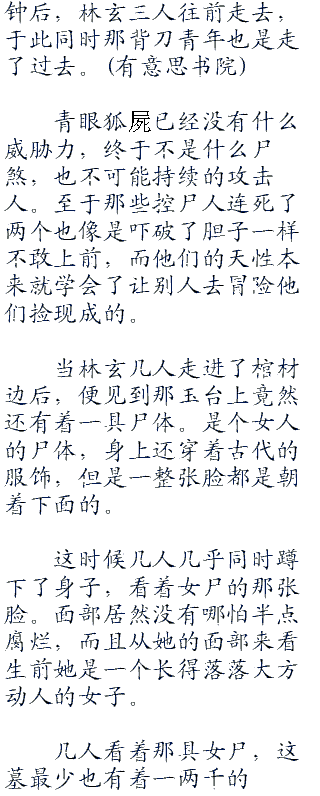 钟后，林玄三人往前走去，
于此同时那背刀青年也是走
了过去。(有意思书院)
青眼狐屍已经没有什么
威胁力，终于不是什么尸
煞，也不可能持续的攻击
人。至于那些控尸人连死了
两个也像是吓破了胆子一样
不敢上前，而他们的天性本
来就学会了让别人去冒险他
们捡现成的。
当林玄几人走进了棺材
边后，便见到那玉台上竟然
还有着一具尸体。是个女人
的尸体，身上还穿着古代的
服饰，但是一整张脸都是朝
着下面的。
这时候几人几乎同时蹲
下了身子，看着女尸的那张
脸。面部居然没有哪怕半点
腐烂，而且从她的面部来看
生前她是一个长得落落大方
动人的女子。
几人看着那具女尸，这
墓最少也有着一两千的